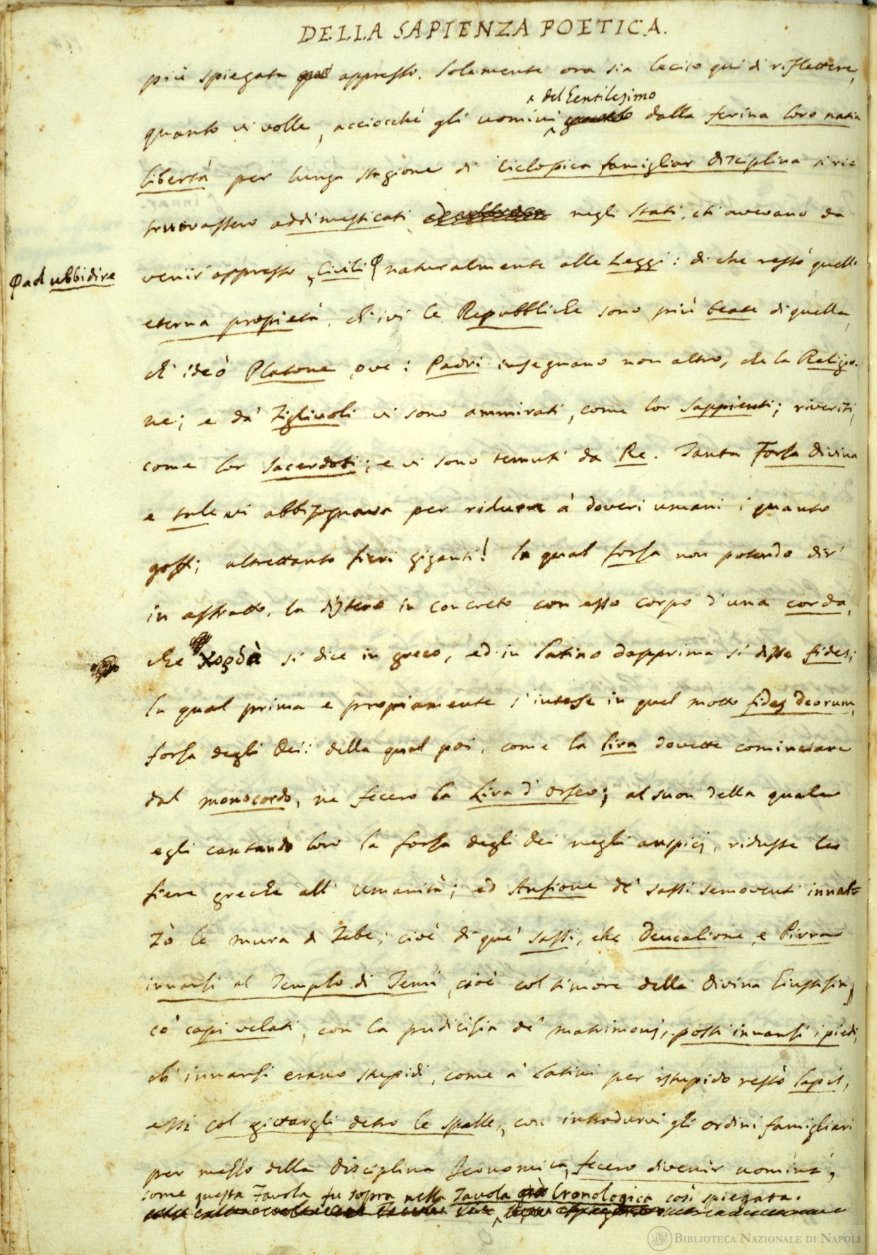 DELLA SAPIENZA POETICA.
più spiegata appresso. Solamente ora sia lecito qui di riflettere,
del Gentilesimo
quanto vi volle, acciocchè gli uomini dalla ferina loro natia
libertà per lunga stagione di ciclopica famigliar disciplina si ri=
truovassero addimesticati negli Stati, ch'avevano da
φ ad ubbidire
venir' appresso, Civili φ naturalmente alle Leggi: di che restò quell'
eterna propietà, ch'ivi le Repubbliche sono più beate di quella,
ch' ideò Platone, ove i Padri insegnano non altro, che la Religio-
ne; e da' Figliuoli vi sono ammirati, come lor Sappienti; riveriti,
come lor Sacerdoti; e vi sono temuti da Re. Tanta Forza divina
e tale vi abbisognava per ridurre a' doveri umani i quanto
goffi, altrettanto fieri giganti! la qual forza non potendo dir'
in astratto, la dissero in concreto con esso corpo d'una corda,
che χορδὰ si dice in greco, ed in Latino dapprima si disse fides;
la qual prima e propiamente s'intese in quel motto fides deorum,
forza degli Dei: della qual poi, come la lira dovette cominciare
dal monocordo, ne fecero la Lira d'Orfeo; al suon della quale
egli cantando loro la forza degli Dei negli auspicj, ridusse le
fiere greche all' umanità; ed Anfione de' sassi semoventi innal=
zò le mura di Tebe; cioè di que' sassi, che Deucalione, e Pirra
innanzi al Templo di Temi, cioè col timore della divina Giustizia,
co' capi velati, con la pudicizia de' matrimonj, posti innanzi i piedi,
ch' innanzi erano stupidi, come a' Latini per istupido restò lapis,
essi col gittargli dietro le spalle, con introdurvi gli ordini famigliari
per mezzo della Disciplina Iconomica, fecero divenir uomini,
come questa Favola fu sopra nella Tavola Cronologica così spiegata.
BIBLIOTECA NAZIONALE DI NAPOLI